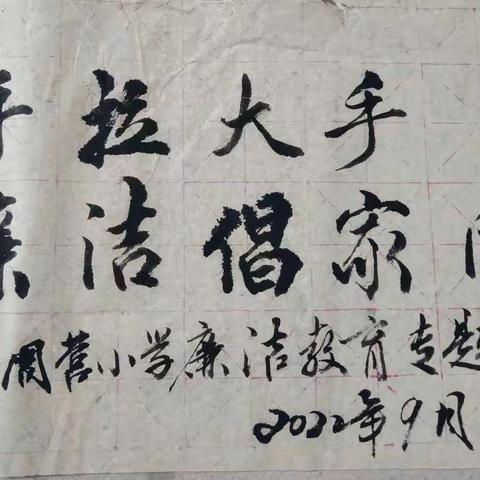 手拉大手
廉洁倡家风
周营小学廉洁教育专题
2022年9月